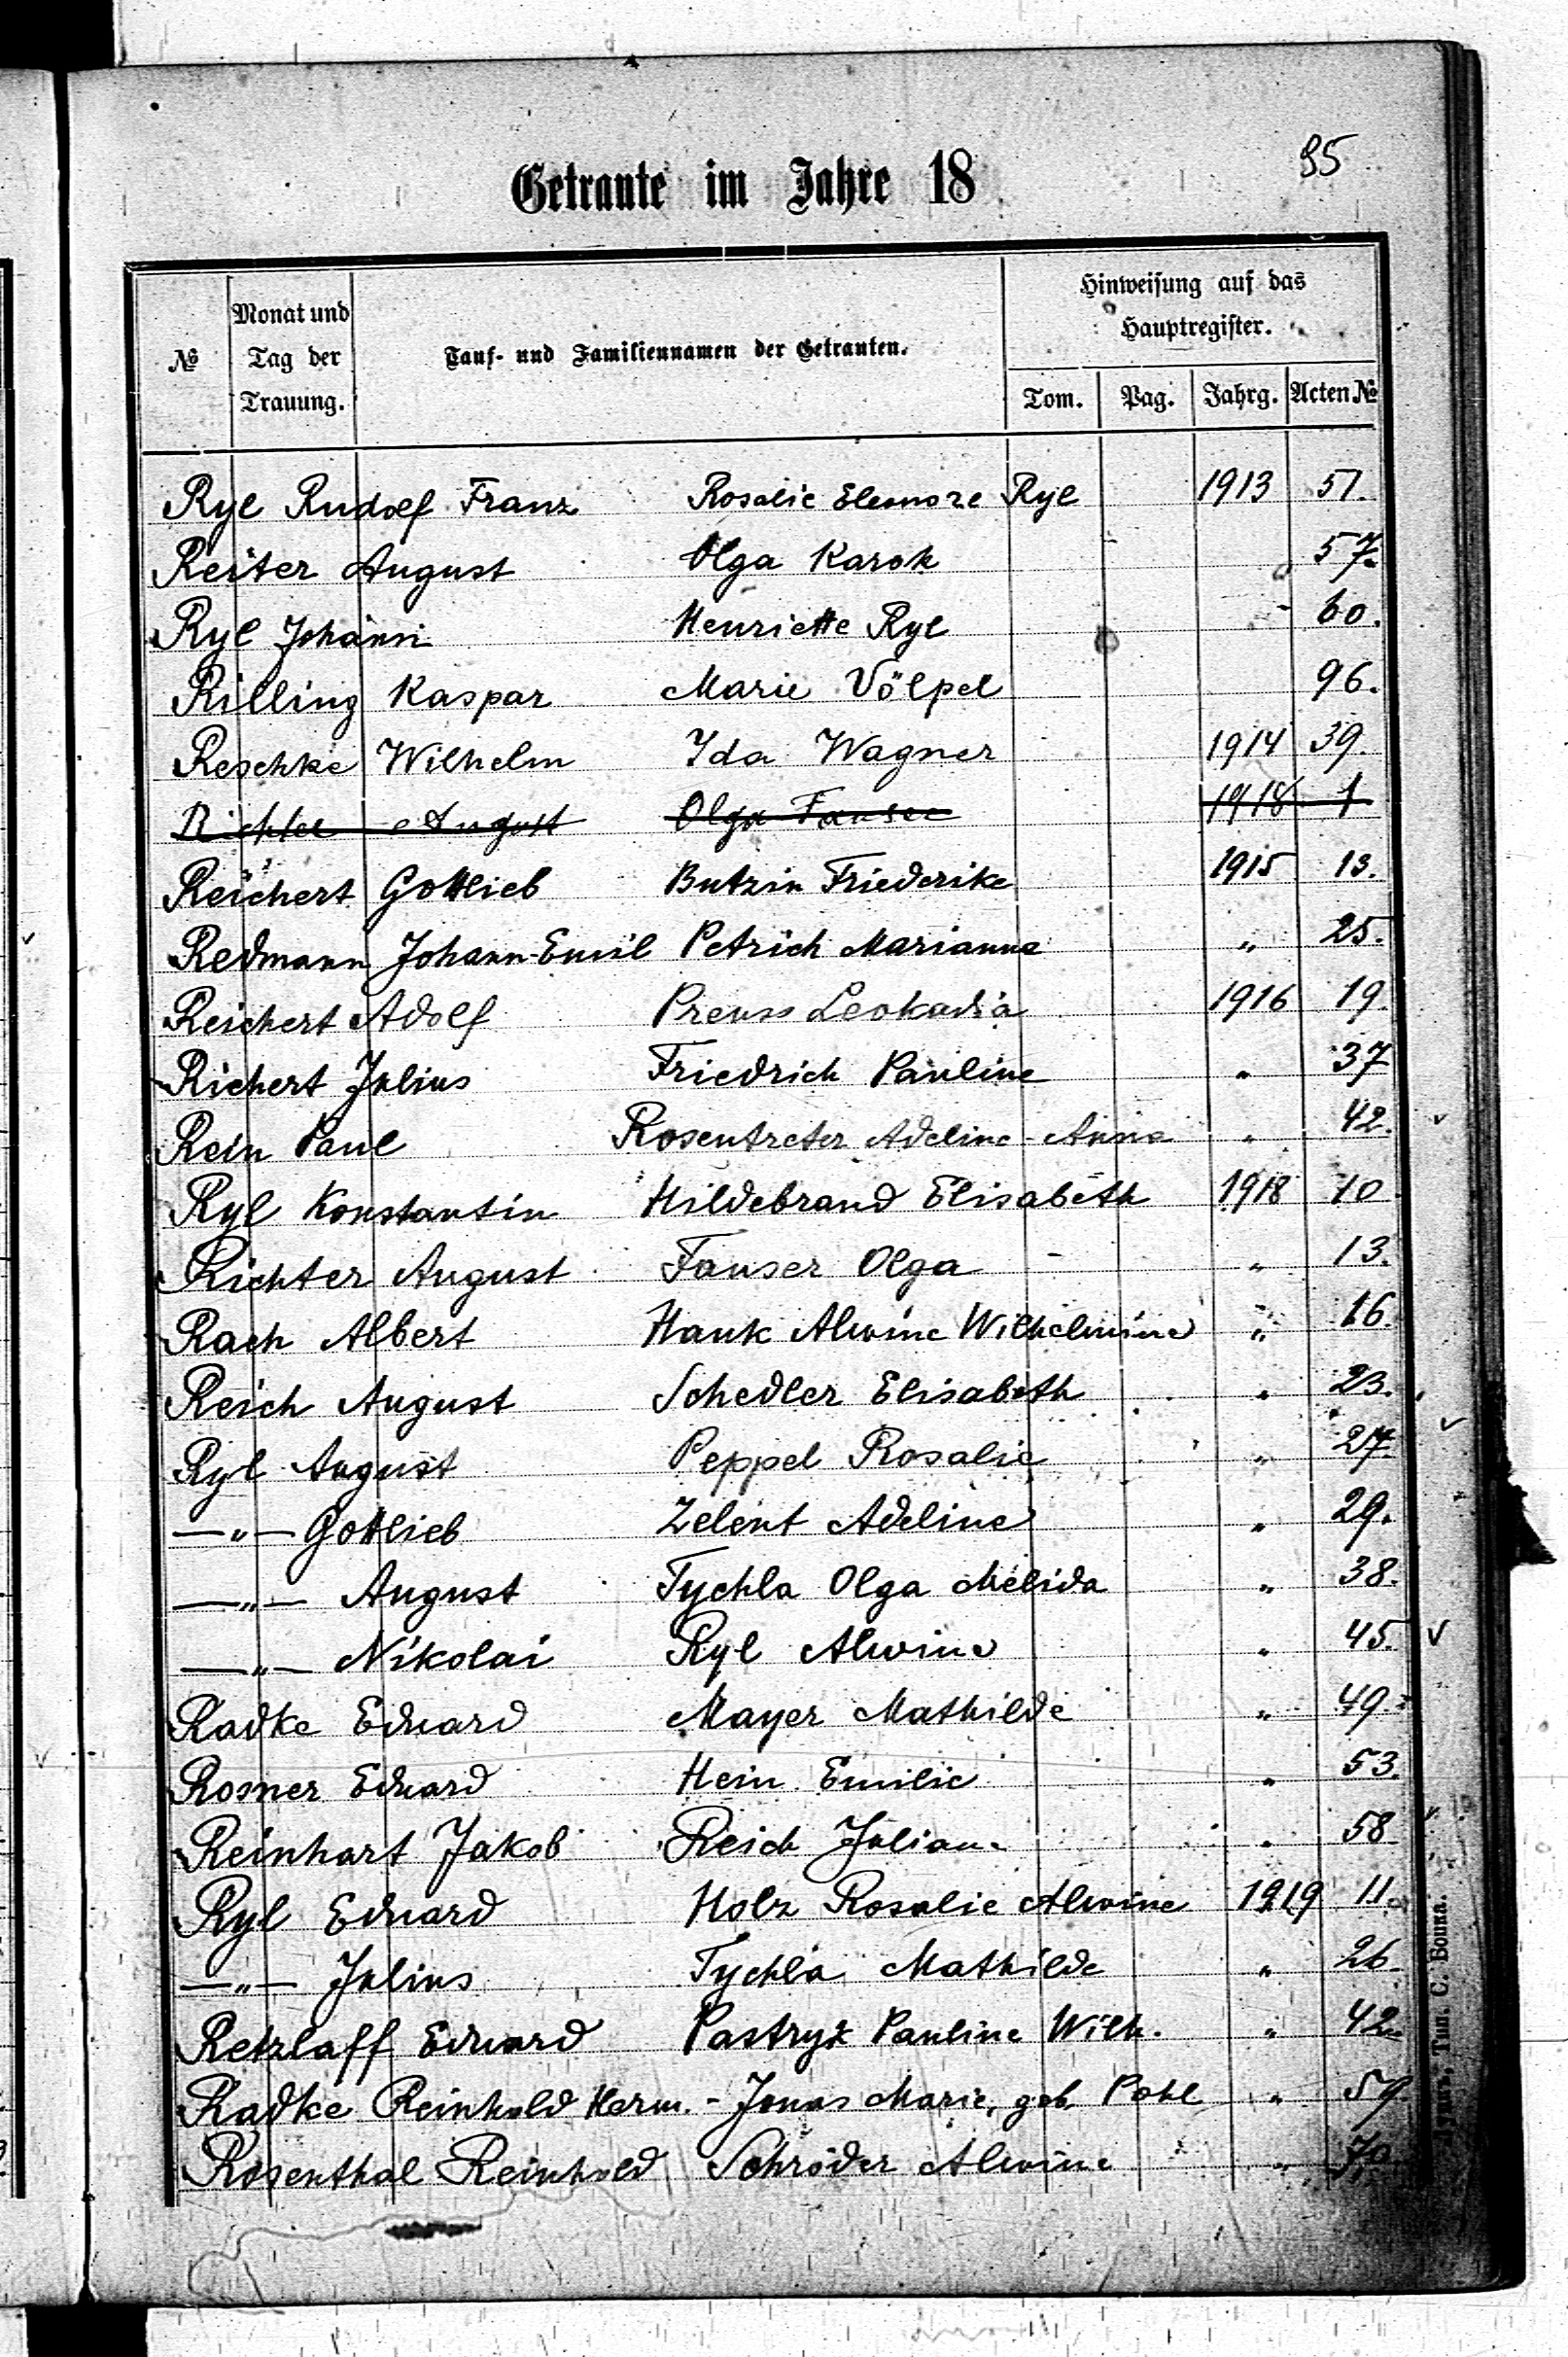 95
Getraute im Jahre 18
№
Monat und
Tag der
Trauung.
Tauf- und Familiennamen der Getrauten.
Hinweisung auf das
Hauptregister.
Tom. Pag. Jahrg. Acten №
Ryl Rudolf Franz Rosalie Eleonore Ryl 1913 51.
Reiter August Olga Karok 57.
Ryl Johann Henriette Ryl 60.
Rilling Kaspar Marie Völpel 96.
Reschke Wilhelm Ida Wagner 1914 39.
Richter August Olga Fauser 1918 1
Reichert Gottlieb Butzin Friederike 1915 13.
Redmann Johann-Emil Petrich Marianna " 25.
Reichert Adolf Preuss Leokadia 1916 19.
Richert Julius Friedrich Pauline " 37
Rein Paul Rosentreter Adeline-Anna " 42.
Ryl Konstantin Hildebrand Elisabeth 1918 10
Richter August Fauser Olga " 13.
Rach Albert Hauk Alwine Wilhelmine " 16.
Reich August Schedler Elisabeth " 23.
Ryl August Peppel Rosalie " 27.
—"— Gottlieb Zelent Adeline " 29.
—"— August Tychla Olga Melida " 38.
—"— Nikolai Ryl Alwine " 45.
Radke Eduard Mayer Mathilde " 49.
Rosner Eduard Hein Emilie " 53.
Reinhart Jakob Reich Juliane " 58
Ryl Eduard Holz Rosalie Alwine 1919 11.
—"— Julius Tychla Mathilde " 26.
Retzlaff Eduard Pastryk Pauline Wilh. " 42.
Radke Reinhold Herm. - Jonas Marie, geb. Pohl " 59.
Rosenthal Reinhold Schröder Alwine " 70.
Тип. С. Бошка.